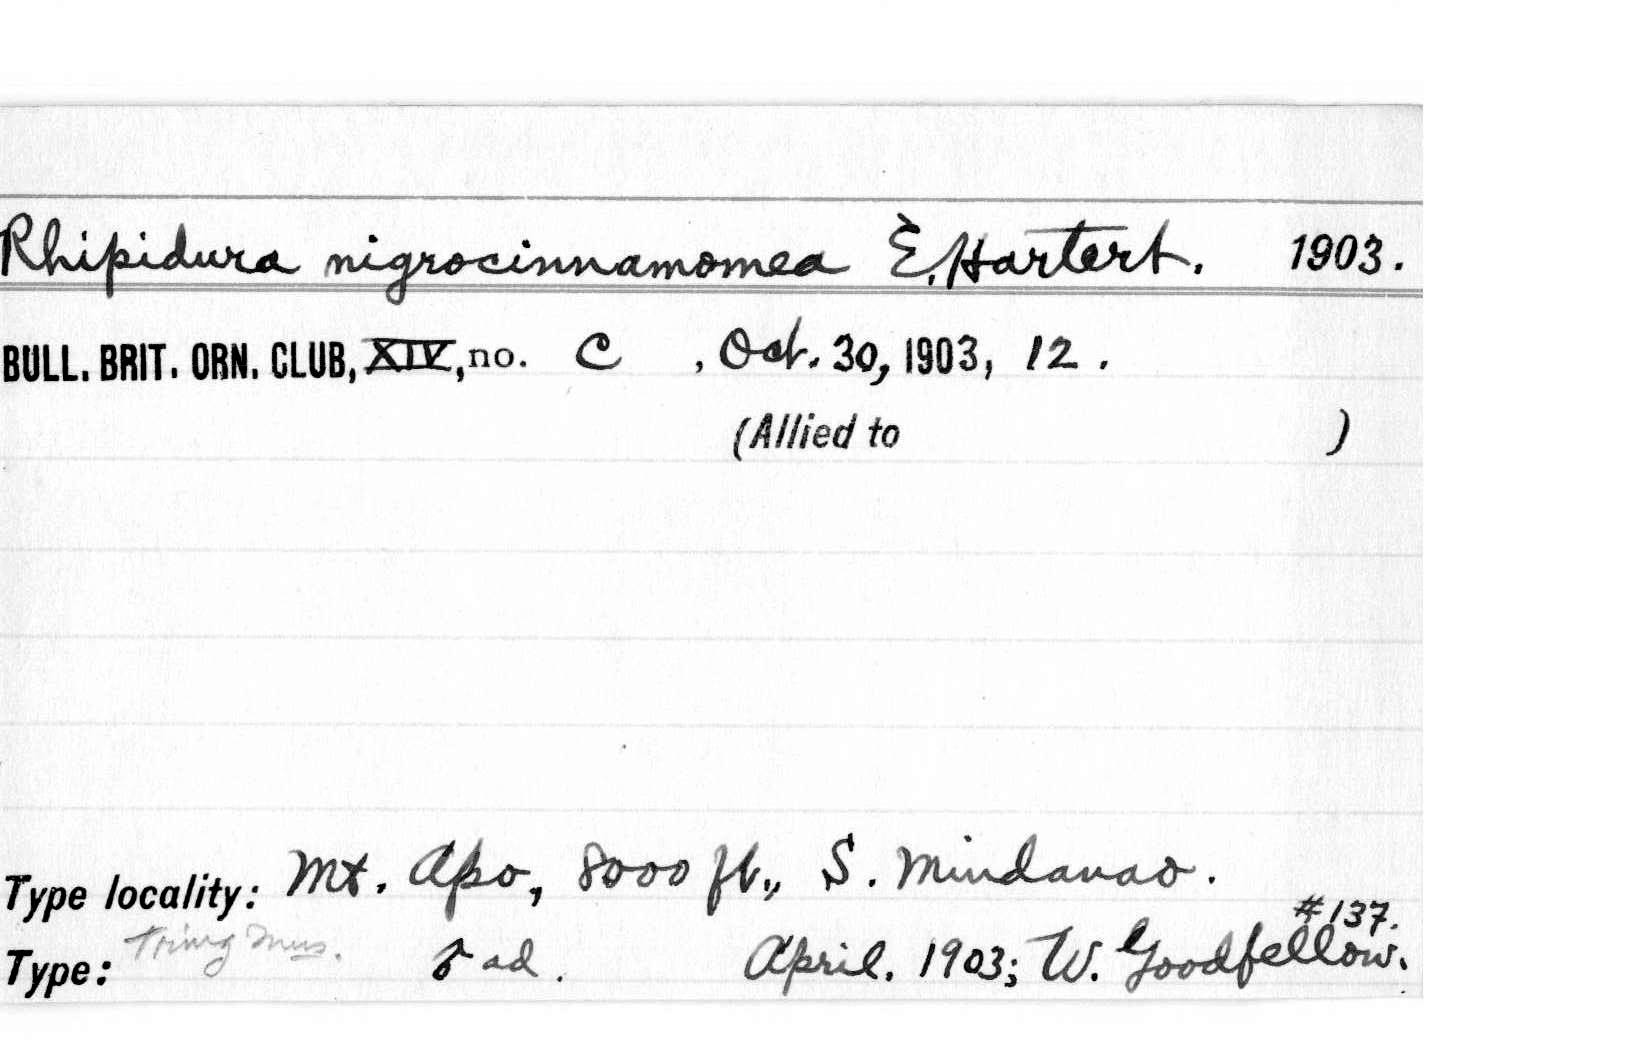 Rhipidura nigrocinnamomea E. Hartert. 1903.
BULL. BRIT. ORN. CLUB, XIV, no. C , Oct. 30, 1903, 12 .
(Allied to )
Type locality: Mt. Apo, 8000 ft., S. Mindanao.
#137.
Type: Tring Mus. ♂ ad. April. 1903; W. Goodfellow.